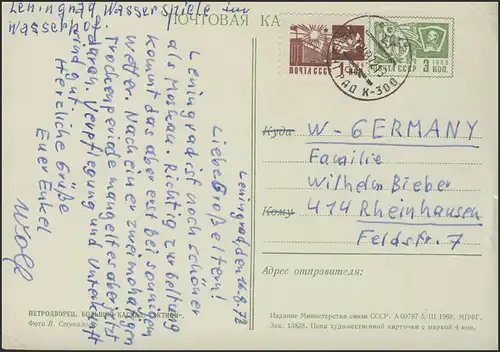 Leningrad Wasserspiele im
Wasserhof.
ПОЧТОВАЯ КА
Leningrad, den 26.8.72
Liebe Großeltern!
Leningrad ist noch schöner
als Moskau. Richtig zur Geltung
kommt das aber erst bei sonnigem
Wetter. Nach einer zweimonatigen
Trockenperiode mangelte es aber jetzt
daran. Verpflegung und Unterkunft
sind gut.
Herzliche Grüße
Euer Enkel
Wolf
ПОЧТА СССР
1
3 КОП.
РАД К-300
Куда
W-GERMANY
Familie
Wilhelm Bieber
Кому
414 Rheinhausen
Feldstr. 7
Адрес отправителя:
ПЕТРОДВОРЕЦ. БОЛЬШОЙ КАСКАД.
Фото В. Стукалова
Издание Министерства связи СССР. А 09787 5/III 1968. МПФГ.
Зак. 13838. Цена художественной карточки с маркой 4 коп.